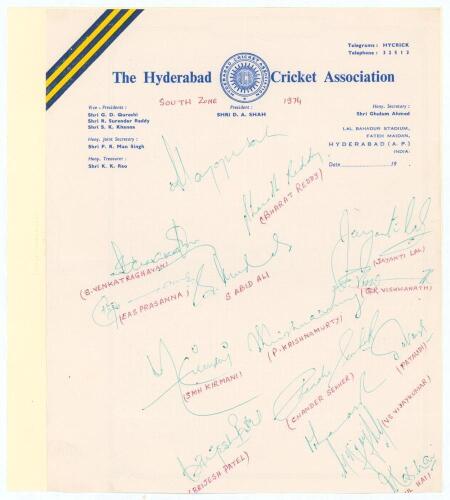 Telegrams : HYCRICK
Telephone : 32513
The Hyderabad Cricket Association
SOUTH ZONE 1974
Vice - Presidents :
Shri G. D. Qureshi
Shri R. Surender Reddy
Shri S. K. Khanna
President :
SHRI D. A. SHAH
Hony. Secretary :
Shri Ghulam Ahmed
Hony. Joint Secretary :
Shri P. R. Man Singh
Hony. Treasurer :
Shri K. K. Rao
LAL BAHADUR STADIUM,
FATEH MAIDAN,
HYDERABAD (A. P.)
INDIA.
Date 19 .
Bharath Reddy
(BHARAT REDDY)
Jayantilal
(JAYANTI LAL)
(S. VENKATRAGHAVAN)
(EAS PRASANNA)
S ABID ALI
(GR VISHWANATH)
(P. KRISHNAMURTY)
(SMH KIRMANI)
(CHANDER SEKHER)
(PATAUDI)
(VS VIJAYKUMAR)
Brijesh Patel
(BRIJESH PATEL)
HAI)